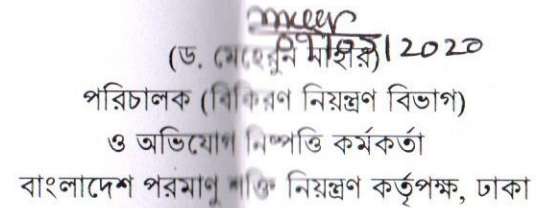 ০৭/০২/2020
(ড. মেহেরুন নাহার)
পরিচালক (বিকিরণ নিয়ন্ত্রণ বিভাগ)
ও অভিযোগ নিষ্পত্তি কর্মকর্তা
বাংলাদেশ পরমাণু শক্তি নিয়ন্ত্রণ কর্তৃপক্ষ, ঢাকা